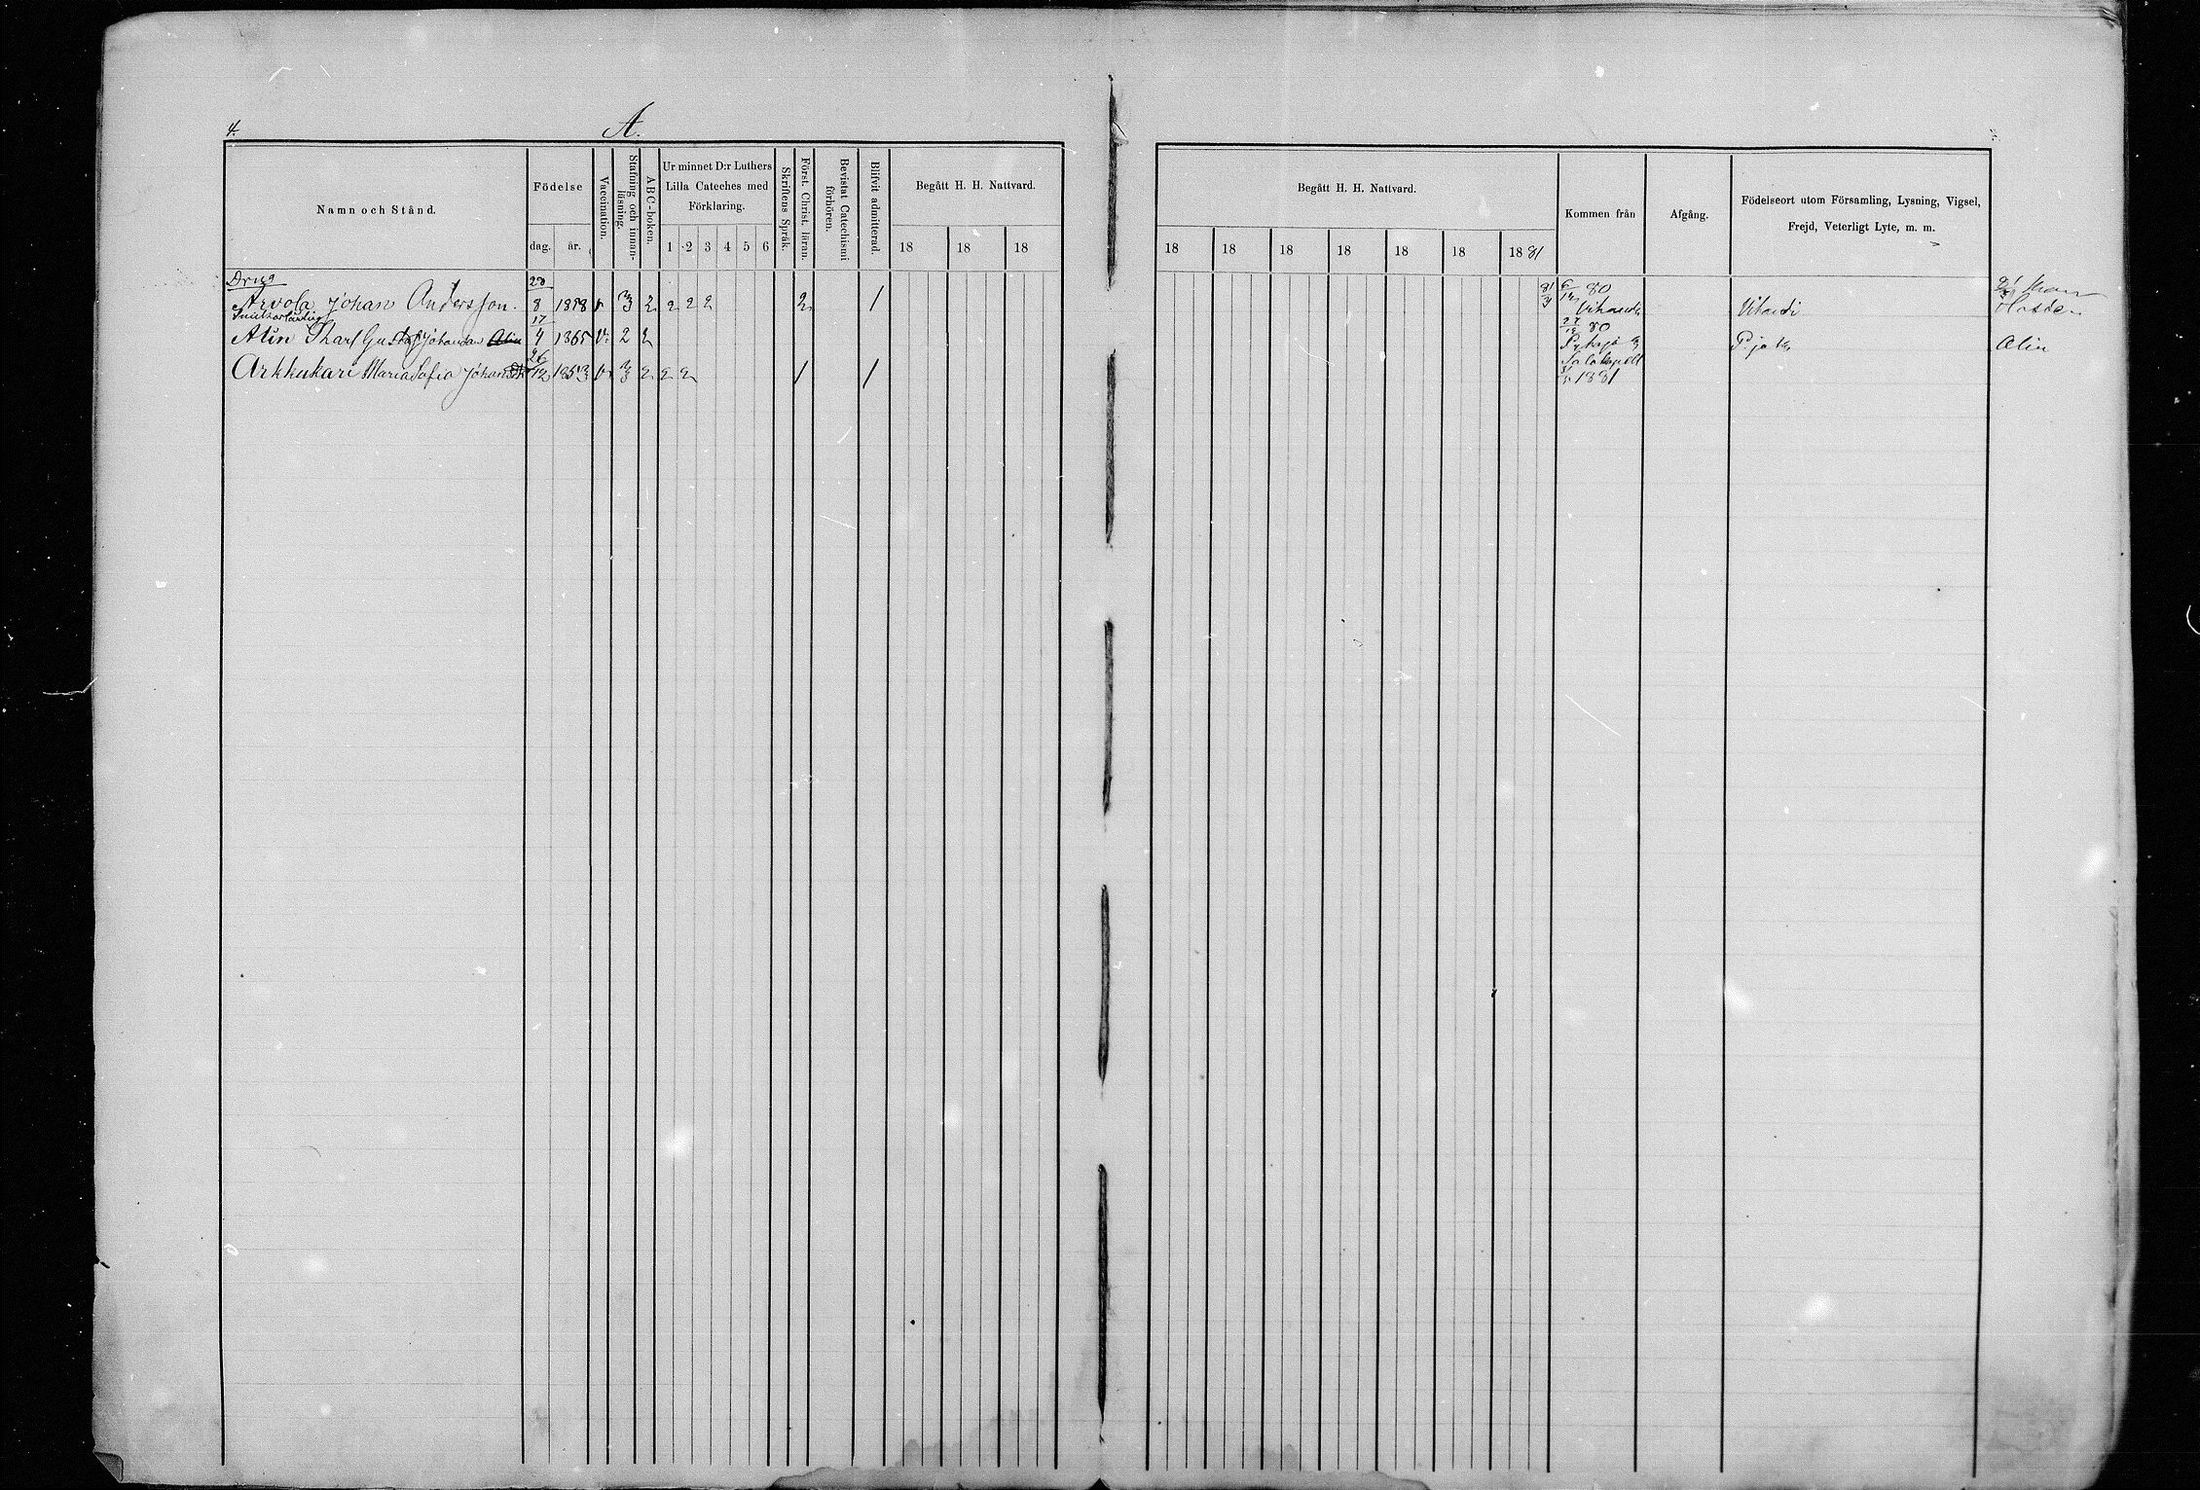 4.
A.
Namn och Stånd.
Födelse
dag.
år.
Vaccination.
Stafning och innan-
läsning.
ABC-boken.
Ur minnet D:r Luthers
Lilla Cateches med
Förklaring.
1 2 3 4 5 6
Skriftens Språk.
Först. Christ. läran.
Bevistat Catechismi
förhören.
Blifvit admitterad.
Begått H. H. Nattvard.
18 18 18
Begått H. H. Nattvard.
18 18 18 18 18 18 18 81
Kommen från
Afgång.
Födelseort utom Församling, Lysning, Vigsel,
Frejd, Veterligt Lyte, m. m.
Dreng
Arvola Johan Andersson. 28/8 1858 v 3 2 2 2 2 2 1 6/12 80
Vihanti
Alin Karl Gustaf Johansson Alin 17/4 1865 v. 2 2 80 Alin
Arkkukari Maria Sofia Johansdr 26/12 1853 v 3 2 2 2 1 1 Salo kapell
1881